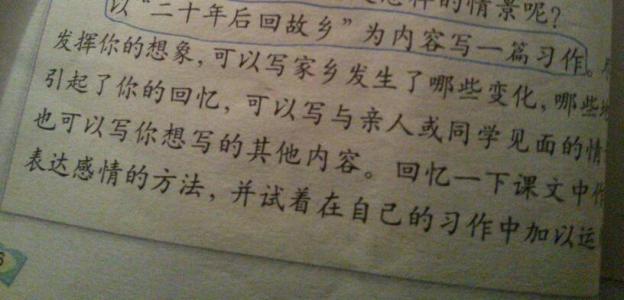 样的情景呢？
以“二十年后回故乡”为内容写一篇习作。
发挥你的想象，可以写家乡发生了哪些变化，哪些
引起了你的回忆，可以写与亲人或同学见面的情
也可以写你想写的其他内容。回忆一下课文中作
表达感情的方法，并试着在自己的习作中加以运
6